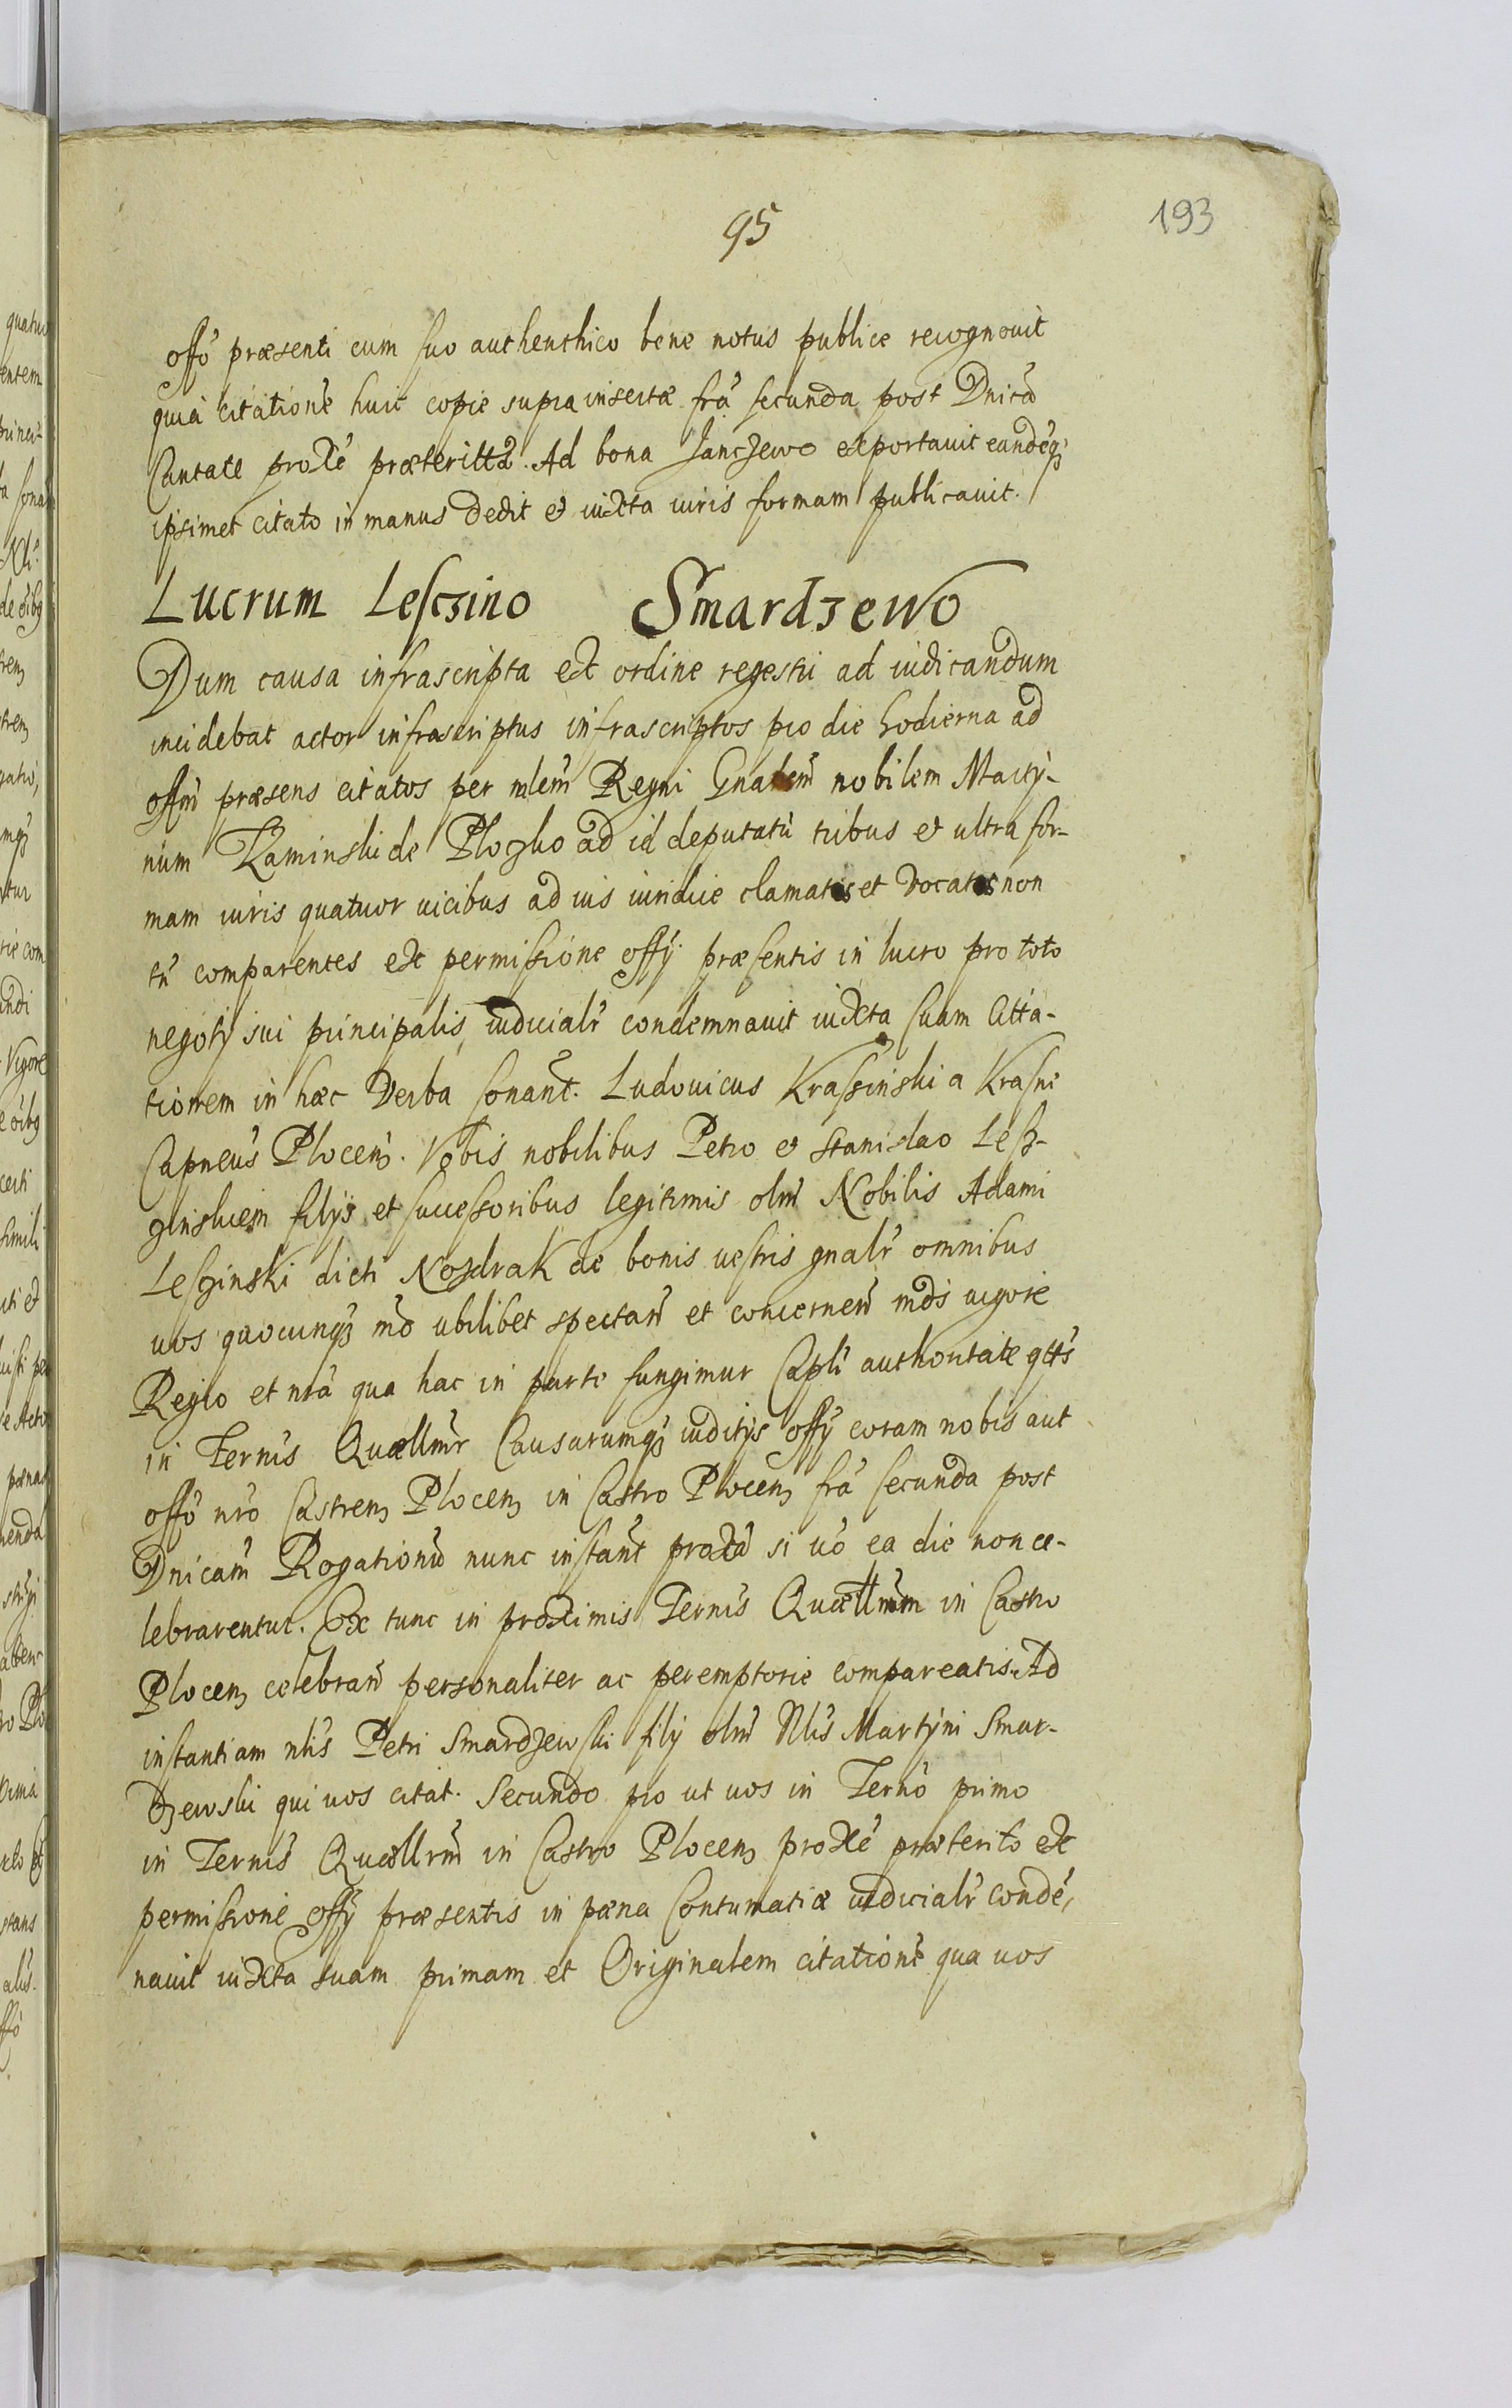 95
193
offō præsenti cum suo authenthico bene notus publice recognouit
quia citationē huic copie supra insertæ frā secunda post Dnicā
Cantate proxē præteritta. Ad bona Janczewo exportauit eandēq3
ipsimet citato in manus dedit et iuxta iuris formam publicauit.
Lucrum Lesczino Smardzewo
Dum causa infrascripta ex ordine regestri ad iudicandum
incidebat actor infrascriptus infrascriptos pro die hodierna ad
offm̄ præsens citatos per mlem̄ Regni Gnalem̄ nobilem Marty-
num Kaminski de Ploczko ad id deputatū tribus et ultra for-
mam iuris quatuor uicibus ad ius iuridice clamatos et vocatos non
tn̄ comparentes ex permissione offÿ præsentis in lucro pro toto
negotÿ sui principalis iudicialr̄ condemnauit iuxta suam citta-
tionem in hæc verba sonan̄t. Ludouicus Krassinski a Krasne
Capneus̄ Plocen̄. Vobis nobilibus Petro et Stanislao Lesz-
zinskiem filÿs et successoribus legitimis olm̄ Nobilis Adami
Leszinski dicti Nozdrak de bonis uestris gnalr̄ omnibus
uos quocunq3 mō ubilibet spectan̄ et concernen̄ mds̄ uigore
Regio et nrā qua hac in parte fungimur Capli authoritate qtts̄
in Ternis̄ Quællmr̄ Causarumq3 iuditÿs offÿ coram nobis aut
offō nrō Castren3 Plocen3 in Castro Plocen3 frā secunda post
Dnicam̄ Rogationū nunc instan̄t proxā si uō ea die non ce-
lebrarentur. Ex tunc in proximis Ternis̄ Quællmm in Castro
Plocen3 celebran̄ personaliter ac peremptorie compareatis. Ad
instantiam nlis̄ Petri Smardzewski filÿ olm̄ Nlis̄ Martÿni Smar-
dzewski qui uos citat. Secundo pro ut uos in Ternō primo
in Ternis̄ Quællrm̄ in Castro Plocen3 proxē præterito ex
permissione offÿ præsentis in pæna Contumatiæ iudicialr̄ condē,
nauit iuxta suam primam et Originalem citationē qua uos